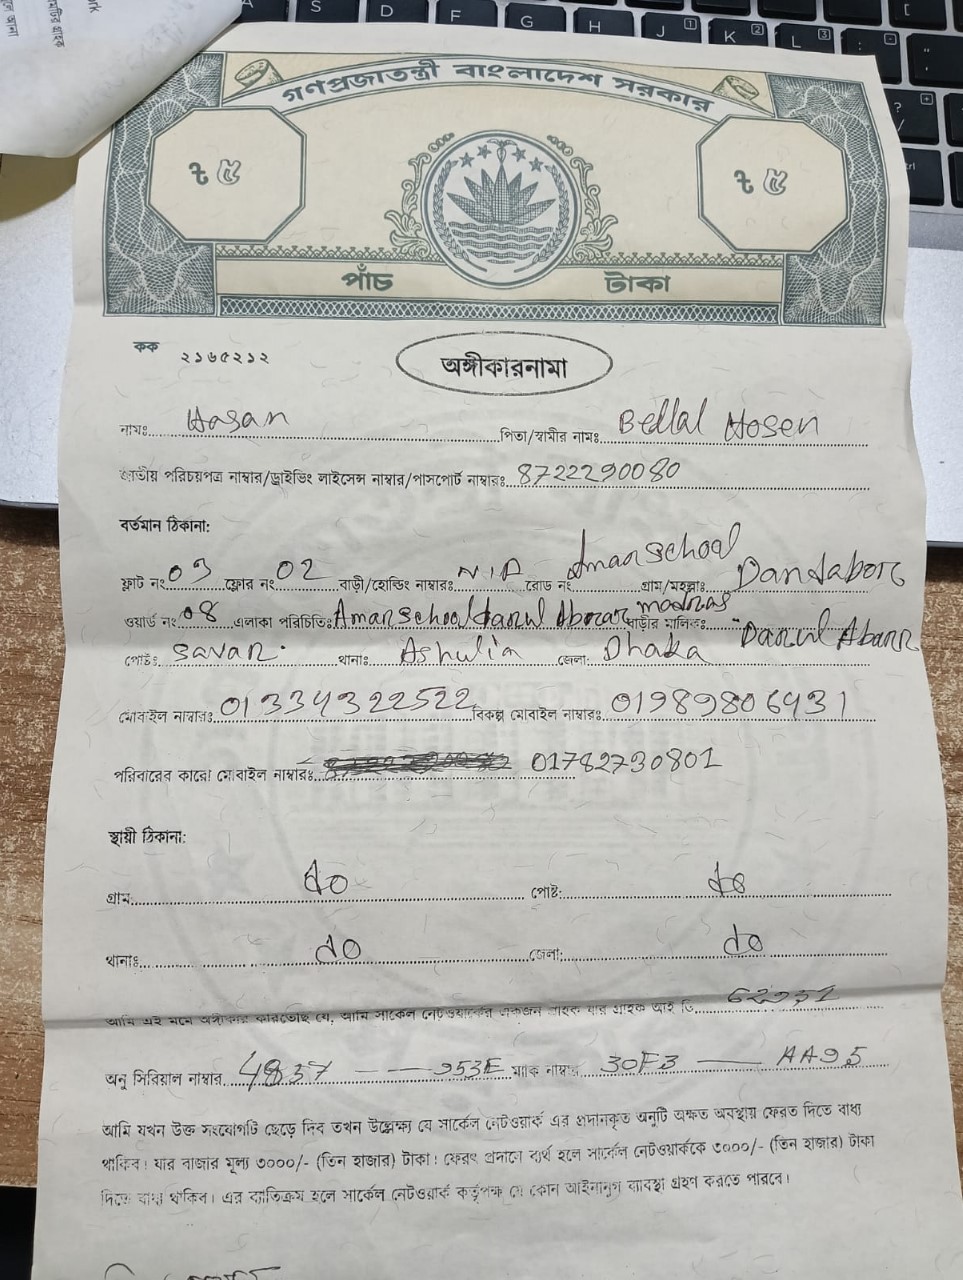 গণপ্রজাতন্ত্রী বাংলাদেশ সরকার
৳ ৫ ৳ ৫
পাঁচ টাকা
কক ২১৬৫২১২
অঙ্গীকারনামা
নামঃ Hasan পিতা/স্বামীর নামঃ Bellal Hosen
জাতীয় পরিচয়পত্র নাম্বার/ড্রাইভিং লাইসেন্স নাম্বার/পাসপোর্ট নাম্বারঃ 8722290080
বর্তমান ঠিকানা:
ফ্লাট নং 03 ফ্লোর নং 02 বাড়ী/হোল্ডিং নাম্বারঃ N/A রোড নং Aman School গ্রাম/মহল্লাঃ
ওয়ার্ড নং 08 এলাকা পরিচিতিঃ Aman School বাড়ীর মালিকঃ
পোষ্টঃ Savar. থানাঃ Ashulia জেলা: Dhaka
মোবাইল নাম্বারঃ 01334322522 বিকল্প মোবাইল নাম্বারঃ 01989806431
পরিবারের কারো মোবাইল নাম্বারঃ 01782730801
স্থায়ী ঠিকানা:
গ্রাম: do পোষ্ট: do
থানাঃ do জেলা: do
আমি এই মর্মে অঙ্গীকার করিতেছি যে, আমি সার্কেল নেটওয়ার্কের একজন গ্রাহক যার গ্রাহক আই ডি
অনু সিরিয়াল নাম্বার 4837 — — 953E ম্যাক নাম্বার 30F3 — AA95
আমি যখন উক্ত সংযোগটি ছেড়ে দিব তখন উল্লেখ্য যে সার্কেল নেটওয়ার্ক এর প্রদানকৃত অনুটি অক্ষত অবস্থায় ফেরত দিতে বাধ্য
থাকিব। যার বাজার মূল্য ৩০০০/- (তিন হাজার) টাকা। ফেরৎ প্রদানে ব্যর্থ হলে সার্কেল নেটওয়ার্ককে ৩০০০/- (তিন হাজার) টাকা
দিতে বাধ্য থাকিব। এর ব্যতিক্রম হলে সার্কেল নেটওয়ার্ক কর্তৃপক্ষ যে কোন আইনানুগ ব্যবস্থা গ্রহণ করতে পারবে।